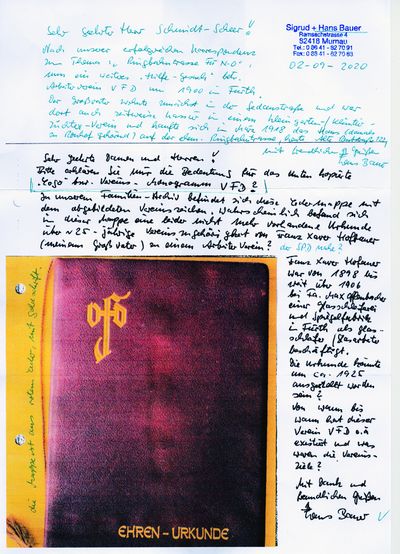 Sehr geehrter Herr Schmidt-Scheer!
Sigrud + Hans Bauer
Ramsachstrasse 4
82418 Murnau
Tel.: 0 88 41 - 62 70 91
Fax: 0 88 41 - 62 70 63
02-09-2020
Nach unserer erfolgreichen Korrespondenz
zum Thema "Ringbahntrasse für N-O"
nun ein weiteres "Hilfe-Gesuch" betr.
Arbeiterverein VFD um 1900 in Fürth.
Der Großvater wohnte zunächst in der Sedanstraße und war
dort auch zeitweise Kassier in einem Kleingarten/
züchter-Verein und kaufte sich 1918 das Haus
zu Ronhof gehörend) auf der ehem. Ringbahntrasse, heute Alte
mit freundlichen Grüßen
Hans Bauer
Sehr geehrte Damen und Herren!
Bitte erklären Sie mir die Bedeutung für das unten kopierte
"Logo" bzw. Vereins-Monogramm VFD?
In unserem Familien-Archiv befindet sich diese Ledermappe mit
dem abgebildeten Vereinszeichen. Wahrscheinlich befand sich
in dieser Mappe eine leider nicht mehr vorhandene Urkunde
über 25-jährige Vereinszugehörigkeit von Franz Xaver Hofkner
(meinem Großvater) zu einem Arbeiterverein? der SPD nahe?
Franz Xaver
war von 1898 bis
weit über 1906
bei Fa. Max Offenbacher
einer Glasschleiferei
und Spiegelfabrik
in Fürth als Glas-
schleifer / Glasarbeiter
beschäftigt.
Die Urkunde könnte
um ca. 1925
ausgestellt worden
sein?
Von wann bis
wann hat dieser
Verein VFD o.ä
existiert und was
waren die Vereins-
Ziele?
Mit Dank und
freundlichen Grüßen
Hans Bauer
die Mappe ist aus rotem Leder, mit Goldschrift
EHREN-URKUNDE